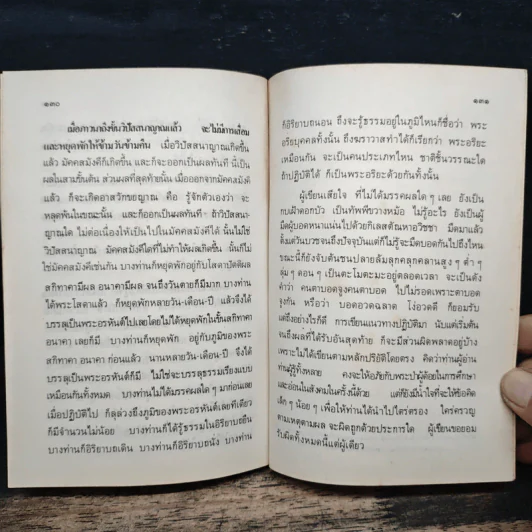 ๑๓๐
เมื่อภาวนาถึงขั้นวิปัสสนาญาณแล้ว จะไม่มีการเสื่อม
และหยุดพักให้ข้ามวันข้ามคืน เมื่อวิปัสสนาญาณเกิดขึ้น
แล้ว มัคคสมังคีก็เกิดขึ้น และก็จะออกเป็นผลทันที นี้เป็น
ผลในสามขั้นต้น ส่วนผลที่สุดท้ายนั้น เมื่อออกจากมัคคสมังคี
แล้ว ก็จะเกิดอาสวักขยญาณ คือ รู้จักตัวเองว่า จะ
หลุดพ้นในขณะนั้น และก็ออกเป็นผลทันที ถ้าวิปัสสนา
ญาณใด ไม่ต่อเนื่องให้เป็นไปในมัคคสมังคีได้ นั้นไม่ใช่
วิปัสสนาญาณ มัคคสมังคีใดที่ไม่ทำให้ผลเกิดขึ้น นั้นก็ไม่
ใช่มัคคสมังคีเช่นกัน บางท่านก็หยุดพักอยู่กับโสดาปัตติผล
สกิทาคามีผล อนาคามีผล จนถึงวันตายก็มีมาก บางท่าน
ได้พระโสดาแล้ว ก็หยุดพักหลายวัน-เดือน-ปี แล้วจึงได้
บรรลุเป็นพระอรหันต์ไปเลยโดยไม่ได้หยุดพักในชั้นสกิทาคา
อนาคา เลยก็มี บางท่านก็หยุดพัก อยู่กับภูมิของพระ
สกิทาคา อนาคา ก่อนแล้ว นานหลายวัน-เดือน-ปี จึงได้
บรรลุเป็นพระอรหันต์ก็มี ไม่ใช่จะบรรลุธรรมเรียงแบบ
เหมือนกันทั้งหมด บางท่านไม่ได้มรรคผลใด ๆ มาก่อนเลย
เมื่อปฏิบัติไป ก็ลุล่วงถึงภูมิของพระอรหันต์เลยทีเดียว
ก็มีจำนวนไม่น้อย บางท่านก็ได้รู้ธรรมในอิริยาบถยืน
บางท่านก็อิริยาบถเดิน บางท่านก็อิริยาบถนั่ง บางท่าน
๑๓๑
ก็อิริยาบถนอน ถึงจะรู้ธรรมอยู่ในภูมิไหนก็ชื่อว่า พระ
อริยบุคคลทั้งนั้น ถึงฆราวาสทำได้ก็เรียกว่า พระอริยะ
เหมือนกัน จะเป็นคนประเภทไหน ชาติชั้นวรรณะใด
ถ้าปฏิบัติได้ ก็เป็นพระอริยะด้วยกันทั้งนั้น
ผู้เขียนเสียใจ ที่ไม่ได้มรรคผลใด ๆ เลย ยังเป็น
กบเฝ้าดอกบัว เป็นทัพพีขวางหม้อ ไม่รู้อะไร ยังเป็นผู้
มืดผู้บอดหนาแน่นไปด้วยกิเลสตัณหาอวิชชา มืดมาแล้ว
ตั้งแต่วันบวชจนถึงปัจจุบันแต่ก็ไม่รู้จะมืดบอดกันไปถึงไหน
ขณะนี้ก็ยังจับต้นชนปลายล้มลุกคลุกคลานสูง ๆ ต่ำ ๆ
ลุ่ม ๆ ดอน ๆ เป็นตะโมตะมะอยู่ตลอดเวลา จะเป็นดัง
คำว่า คนตาบอดจูงคนตาบอด ไปไม่รอดเพราะตาบอด
จูงกัน หรือว่า บอดอวดฉลาด โง่อวดดี ก็ยอมรับ
แต่ถึงอย่างไรก็ดี การเขียนแนวทางปฏิบัติมา นับแต่เริ่มต้น
จนถึงผลที่ได้รับอันสุดท้าย ก็จะมีส่วนผิดพลาดอยู่บ้าง
เพราะไม่ได้เขียนตามหลักปริยัติโดยตรง คิดว่าท่านผู้อ่าน
ท่านผู้รู้ทั้งหลาย คงจะให้อภัยกับพระป่าผู้ด้อยในการศึกษา
และอ่อนในสังคมในครั้งนี้ด้วย แต่ก็ยังมีน้ำใจที่จะให้ข้อคิด
เล็ก ๆ น้อย ๆ เพื่อให้ท่านได้นำไปไตร่ตรอง ใคร่ครวญ
ตามเหตุตามผล จะผิดถูกด้วยประการใด ผู้เขียนขอยอม
รับผิดทั้งหมดนี้แต่ผู้เดียว